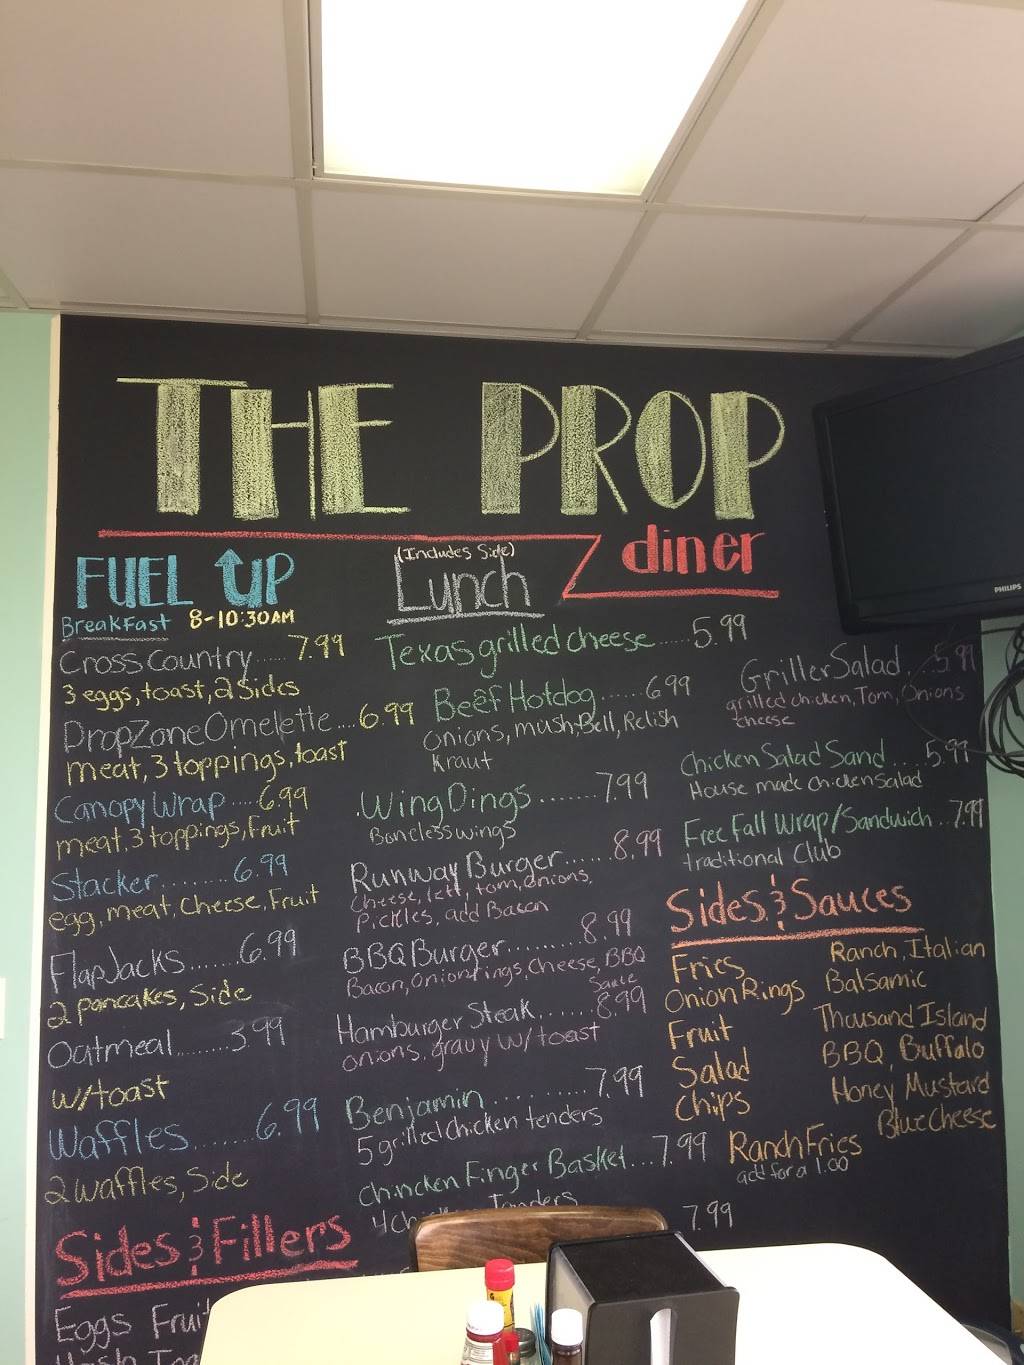 THE PROP
diner
FUEL UP
Breakfast 8-10:30AM
Cross Country......7.99
3 eggs, toast, 2 Sides
DropZone Omelette....6.99
meat, 3 toppings, toast
Canopy Wrap....6.99
meat, 3 toppings, Fruit
Stacker.........6.99
egg, meat, Cheese, Fruit
FlapJacks.......6.99
2 pancakes, Side
Oatmeal........3.99
w/toast
Waffles.......6.99
2 waffles, Side
Sides & Fillers
Eggs Fruit
(Includes Side)
Lunch
Texas grilled cheese.....5.99
Beef Hotdog......6.99
onions, mush, Bell, Relish
Kraut
Wing Dings.......7.99
Boneless wings
Runway Burger......8.99
Cheese, lett, tom, onions,
Pickles, add Bacon
BBQ Burger.........8.99
Bacon, Onion rings, Cheese, BBQ
Sauce
Hamburger Steak.......8.99
onions, gravy w/ toast
Benjamin..........7.99
5 grilled chicken tenders
Chincken Finger Basket...7.99
7.99
Griller Salad...5.99
grilled chicken, Tom, Onions
cheese
Chicken Salad Sand....5.99
House made chicken salad
Free Fall Wrap/Sandwich..7.99
traditional Club
Sides & Sauces
Fries
Onion Rings
Fruit
Salad
Chips
Ranch, Italian
Balsamic
Thousand Island
BBQ, Buffalo
Honey Mustard
Blue Cheese
Ranch Fries
add for a 1.00
PHILIPS